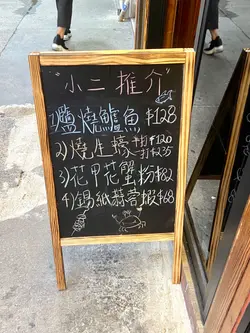 "小二推介"
1)爐燒鱸魚 $128
2)燒生蠔 半打$120
一打$235
3)花甲花蟹粉 $82
4)錫紙蒜蓉蝦 $68